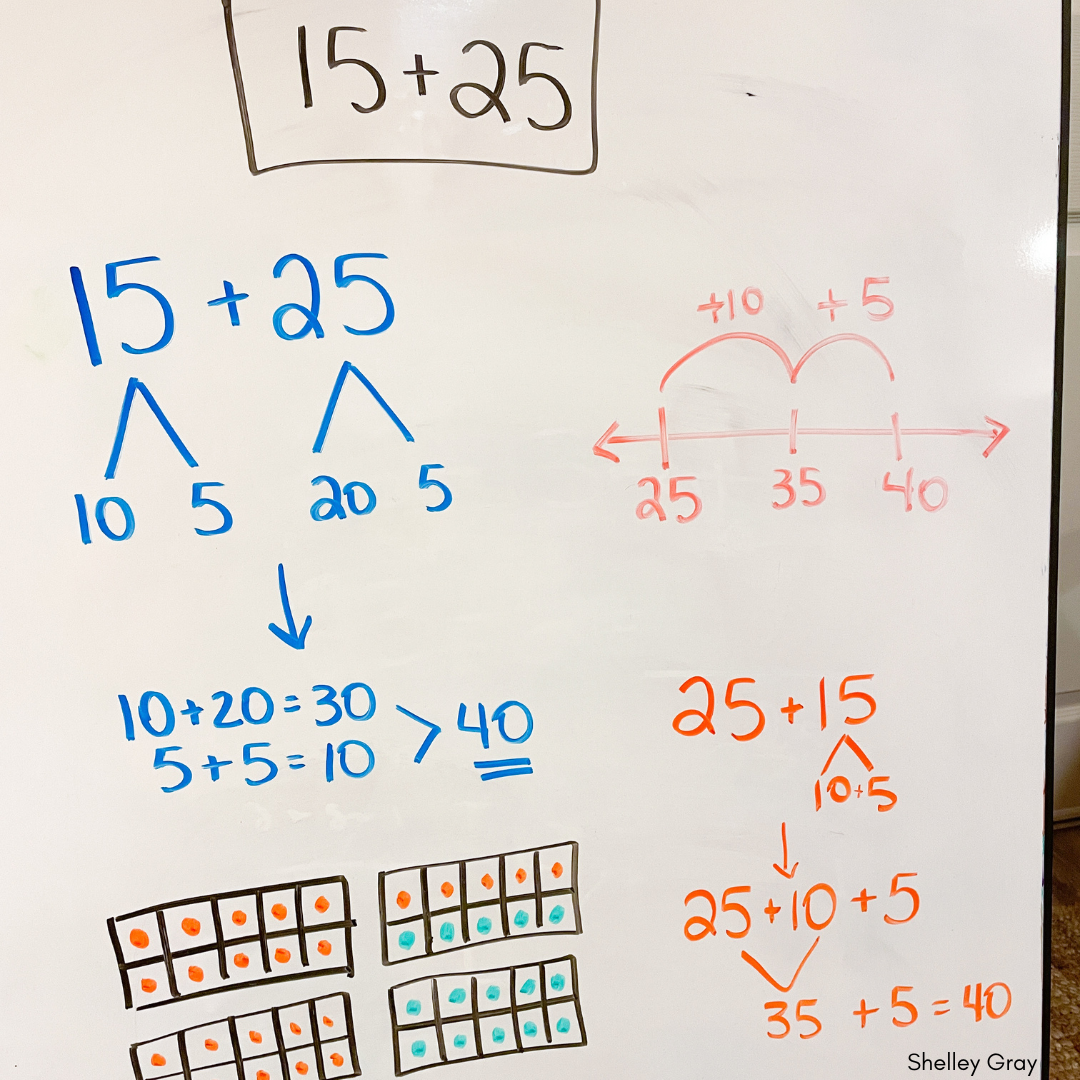 15+25
15 + 25
10 5 20 5
10+20=30
5+5=10
> 40
+10 +5
25 35 40
25+15
10+5
25+10+5
35 +5=40
Shelley Gray